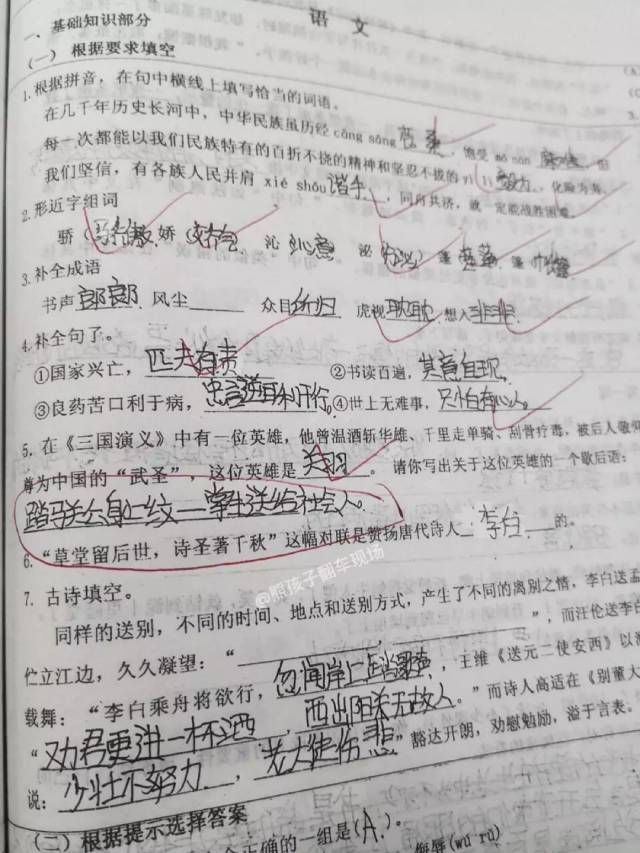 语 文
一、基础知识部分
(一) 根据要求填空
1.根据拼音，在句中横线上填写恰当的词语。
在几千年历史长河中，中华民族虽历经 cāng sāng 饱受 但
每一次都能以我们民族特有的百折不挠的精神和坚忍不拔的 yì lì 毅力，化险为夷
我们坚信，有各族人民并肩 xié shǒu 谐手，同舟共济，就一定能战胜困难。
2.形近字组词
骄（马骄傲 娇 沁 沁意 泌（分泌） 蓬 篷
3.补全成语
书声郎郎 风尘 众目所归 虎视耽耽 想入非非
4.补全句子。
①国家兴亡，匹夫有责 ②书读百遍，其意自现。
③良药苦口利于病，忠言逆耳利于行。④世上无难事，只怕有心人。
5.在《三国演义》中有一位英雄，他曾温酒斩华雄、千里走单骑、刮骨疗毒，被后人敬仰
尊为中国的“武圣”，这位英雄是 关羽。 请你写出关于这位英雄的一个歇后语：
踏马关公身上纹—学生送给社会人。
6.“草堂留后世，诗圣著千秋”这幅对联是赞扬唐代诗人 李白 的。
@熊孩子翻车现场
7.古诗填空。
同样的送别，不同的时间、地点和送别方式，产生了不同的离别之情，李白送孟
伫立江边，久久凝望：“ ， ”，而汪伦送李白
载舞：“李白乘舟将欲行，忽闻岸上踏歌声，王维《送元二使安西》以
“劝君更进一杯酒，西出阳关无故人。”而诗人高适在《别董大
说：少壮不努力，老大徒伤悲”豁达开朗，劝慰勉励，溢于言表。
(二) 根据提示选择答案
正确的一组是(A)。
侮辱(wǔ rǔ)